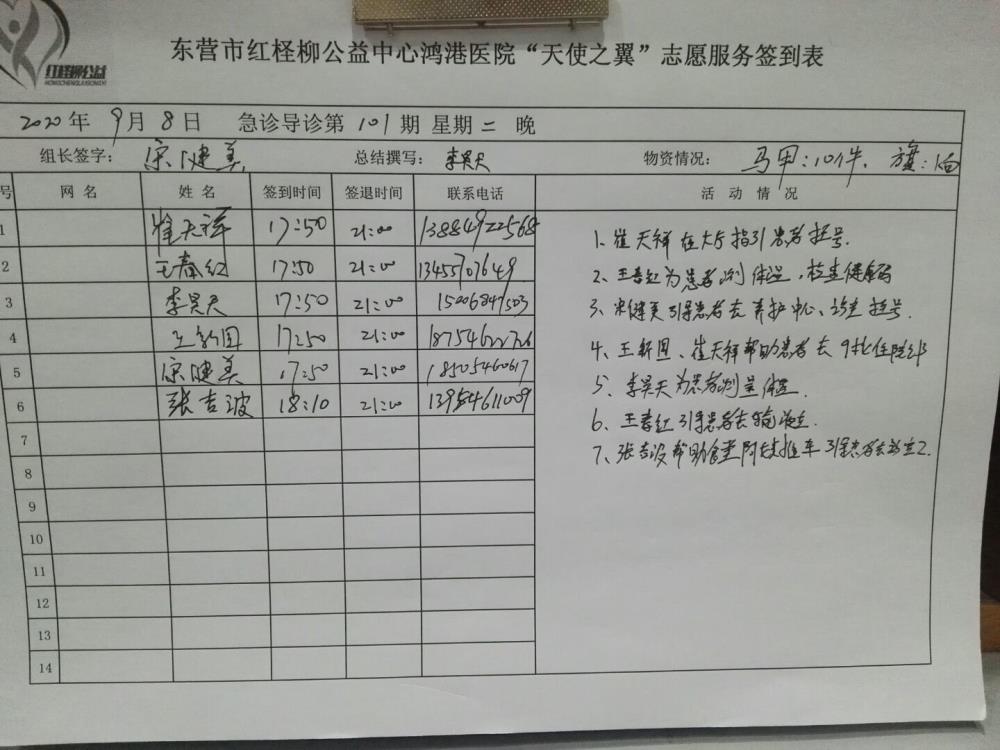 红柽柳公益
东营市红柽柳公益中心鸿港医院“天使之翼”志愿服务签到表
2020年 9月 8日 急诊导诊第 101 期 星期二 晚
组长签字： 宋健美 总结撰写： 李昊天 物资情况： 马甲：10件. 旗：1面
号 网名 姓名 签到时间 签退时间 联系电话 活动情况
1 崔天祥 17:50 21:00 13884922568
2 王春红 17:50 21:00 13455707649
3 李昊天 17:50 21:00 15006847503
4 王新国 17:50 21:00 18754622726
5 宋健美 17:50 21:00 18505460617
6 张吉波 18:10 21:00 13954611009
7
8
9
10
11
12
13
14
1、崔天祥在大厅指引患者挂号.
2、王春红为患者测体温，检查健康码
3、宋健美引导患者去养护中心、挂号.
4、王新国、崔天祥帮助患者去
5、李昊天为患者测量体温.
6、王春红引导患者去输液室.
7、张吉波帮助食堂阿姨推车 引导患者去